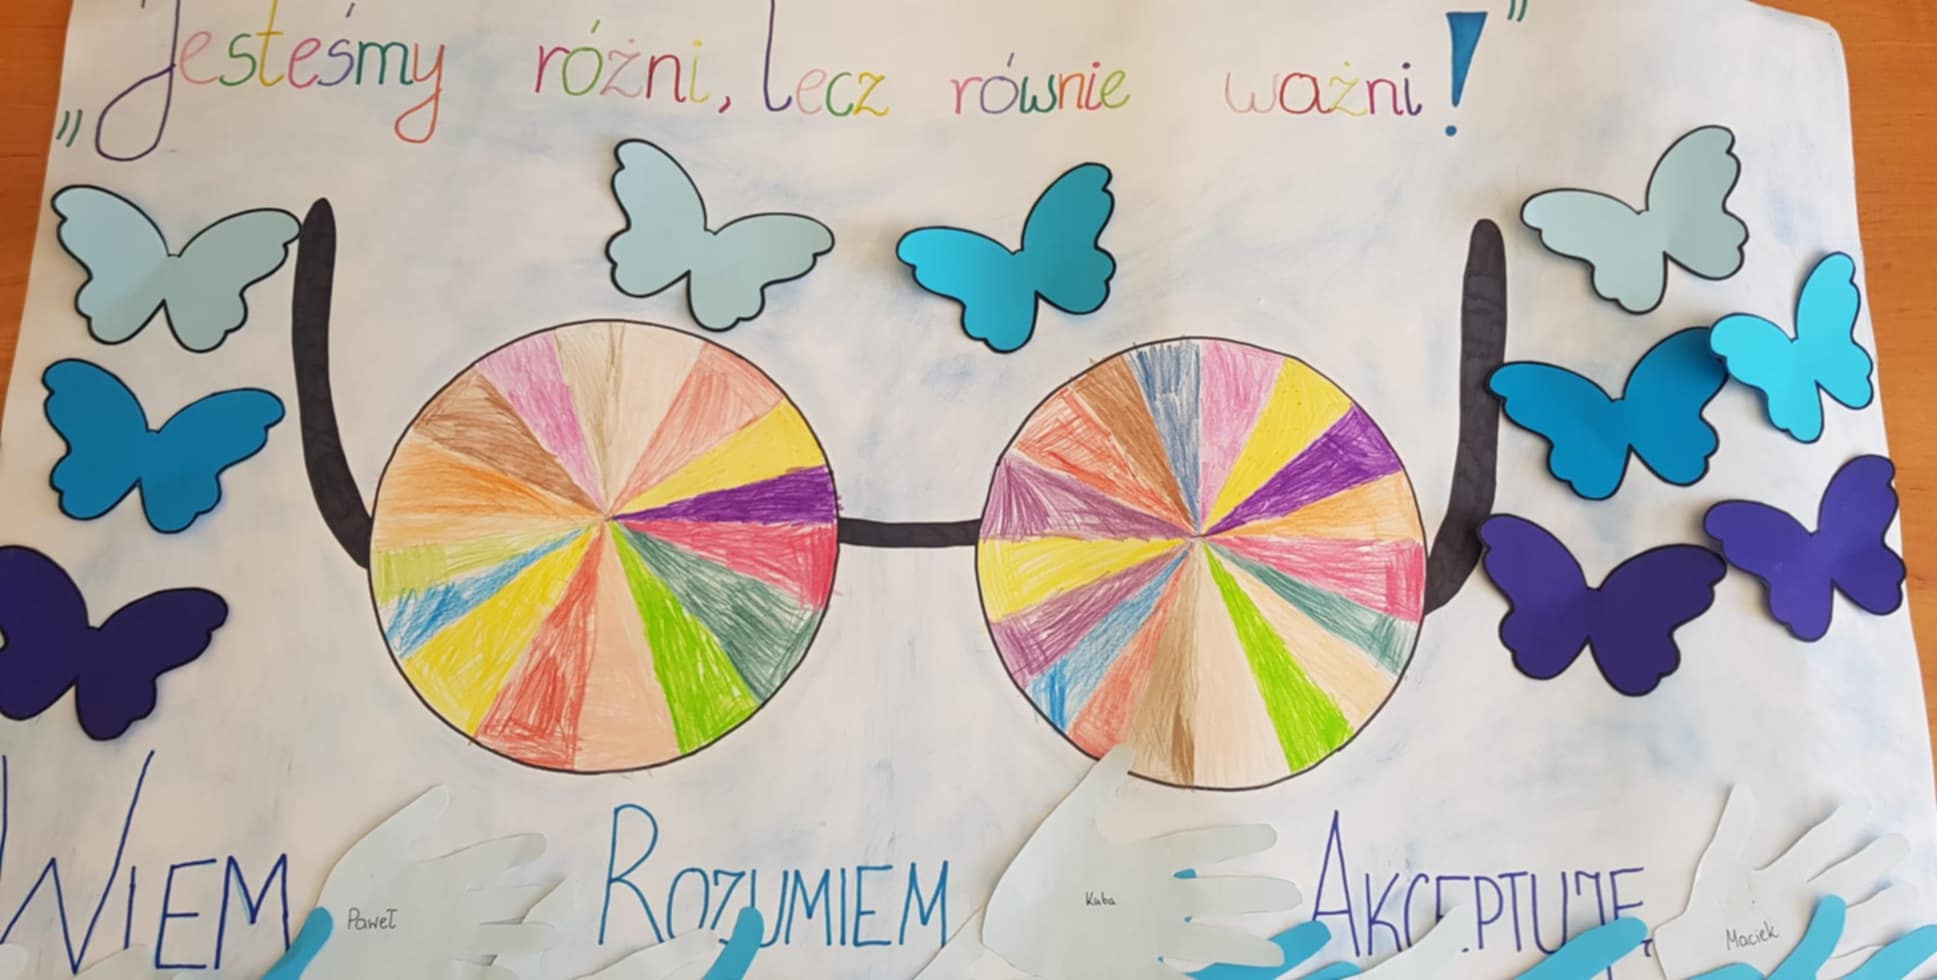 „Jesteśmy różni, lecz równie ważni!”
WIEM ROZUMIEM AKCEPTUJĘ
Paweł Kuba Maciek